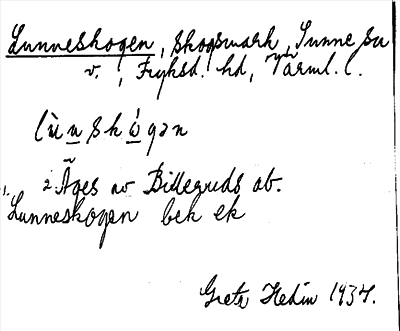 Lunneskogen, skogsmark, Sunne sn
v., Fryksd. hd, Värml. l.
lùnskógən
2. Äges av Billeruds ab.
1. Lunneskogen bek ek
Greta Hedin 1934.